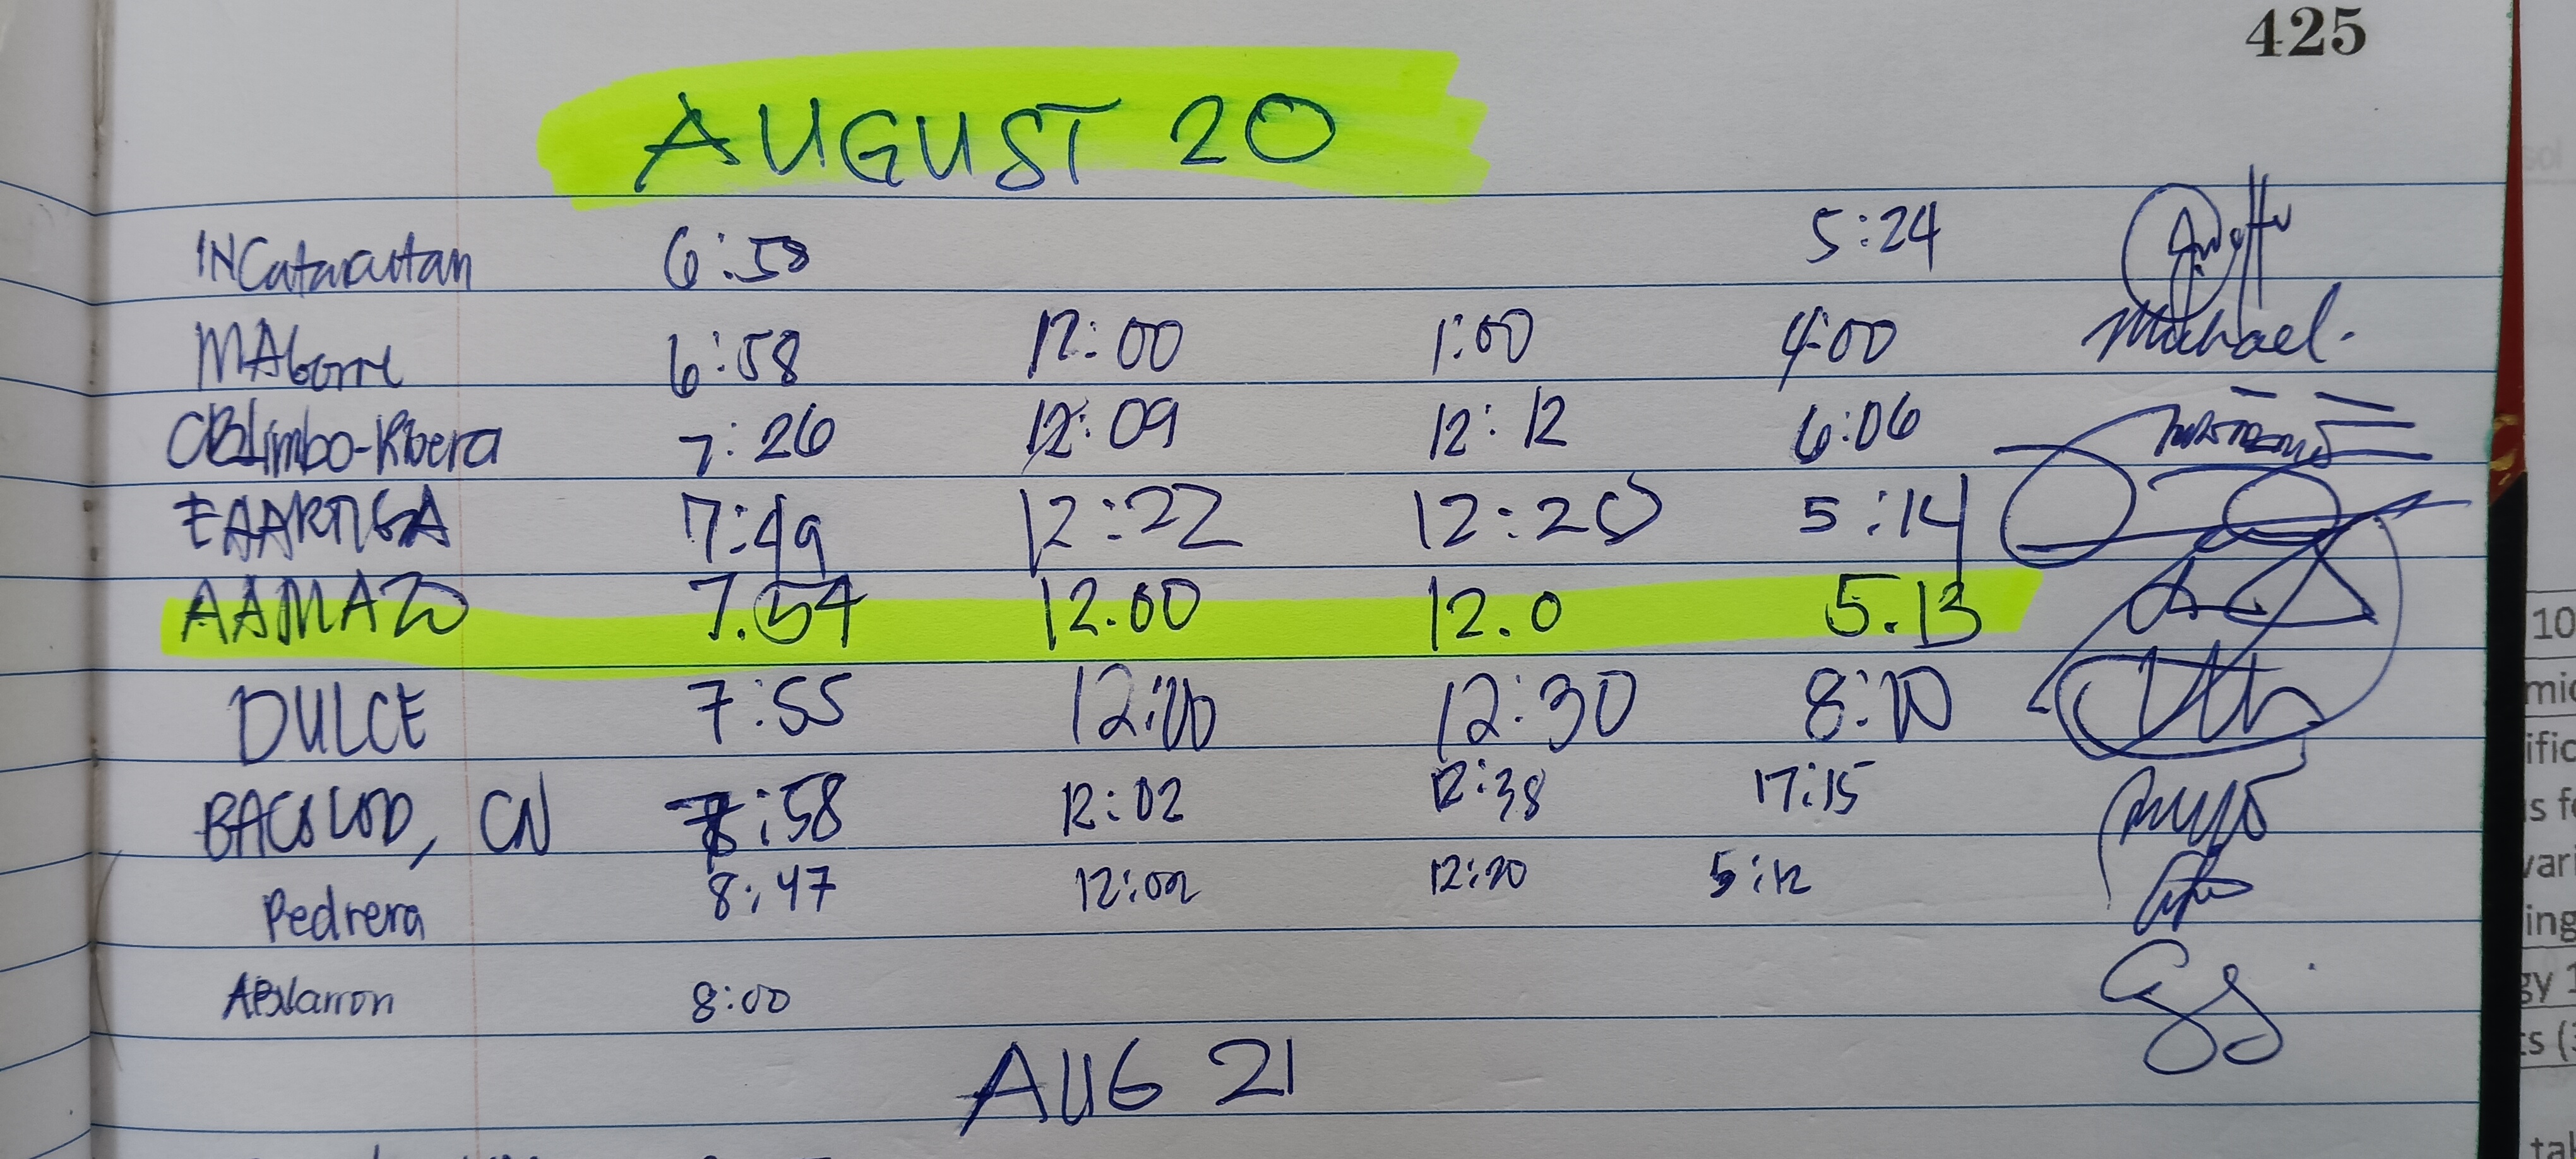 425
AUGUST 20
INCatacutan 6:58 5:24
MAborre 6:58 12:00 1:00 4:00 Michael.
CBLimbo-Ribera 7:26 12:09 12:12 6:06
EAARTIGA 7:49 12:22 12:25 5:14
AAMAZO 7.54 12.00 12.0 5.13
DULCE 7:55 12:20 12:30 8:10
BACOLOD, CN 7:58 12:02 12:38 17:15
Pedrera 8:47 12:02 12:20 5:12
8:00
AUG 21